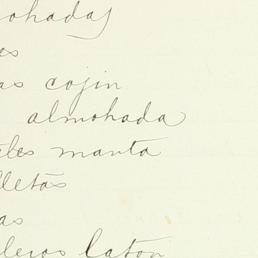 ohadas
es
as cojin
almohada
les manta
lletas
as
leros laton